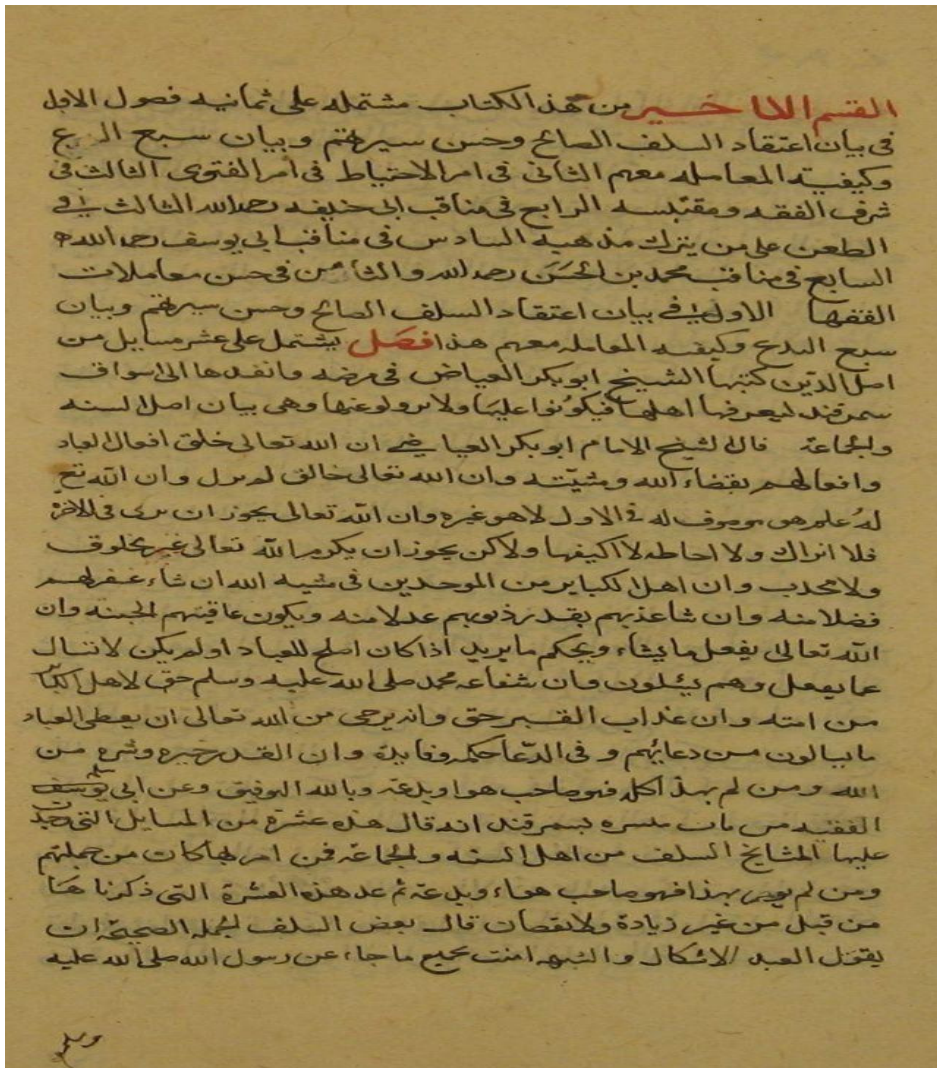 القسم الاخير من هذا الكتاب مشتمله على ثمانيه فصول الاول
في بيان اعتقاد السلف الصالح وحسن سيرهم وبيان سبع
وكيفية المعامله معهم الثاني في امر الاحتياط في أمر الفتوى الثالث في
شرف الفقه ومقتبسه الرابع في مناقب ابى حنيفه رحمه الله الثالث في
الطعن على من يترك مذهبه السادس في مناقب ابي يوسف رحمه الله
السابع في مناقب محمد بن الحسَن رحمه الله والثامن في حسن معاملات
الفقها الاول في بيان اعتقاد السلف الصالح وحسن سيرهم وبيان
سبع البدع وكيفيه المعامله معهم هذا فصل يشتمل على عشر مسايل من
اصل الدين كتبها الشيخ ابو بكر العياض في مرضه وانفدها الى اسواق
سمرقند ليعرفها اهلها فيكونوا عليها ولا يزولوا عنها وهى بيان اصل السنه
والجماعة قال الشيخ الامام ابو بكر العياضي ان الله تعالى خلق افعال العباد
وافعالهم بقضاء الله ومشيّته وان الله تعالى خالق لم يزل وان الله تع
لهُ علم هو موصوف له في الاول لا هو غيره وان الله تعالى يجوز ان يرى في الاخرة
فلا ادراك ولا احاطه لا اكيفها ولاكن يجوز ان يكون الله تعالى غير مخلوق
ولا محدث وان اهل الكباير من الموحدين في مشيه الله ان شاء غفر لهم
فضلا منه وان شا عذبهم بقدر ذنوبهم عدلا منه ويكون عاقبتهم الجنه وان
الله تعالى يفعل ما يشاء ويحكم ما يريد اذا كان اصلح للعباد او لم يكن لا تسال
عما يفعل وهم يسئلون وان شفاعه محمد صلى الله عليه وسلم حق لاهل الكبا
من امته وان عذاب القبر حق وانه يرجى من الله تعالى ان يعطى العباد
ما يسالون من دعائهم وفى الدعا حكمه وفايدة وان القدر خيره وشره من
الله ومن لم بهذا كله فهو صاحب هوا وبدعة وبالله التوفيق وعن ابي يوسف
الفقيه من باب بسمرقند انه قال هذه عشرة من المسايل التى وجدت
عليها المشايخ السلف من اهل السنه والجماعة فمن امن بها كان من جملتهم
ومن لم يومن بهذا فهو صاحب هواء وبدعة ثم عد هذه العشرة التى ذكرنا ها
من قبل من غير زيادة ولا نقصان قال بعض السلف لجمله الصحيحة ان
يقول العبد الاشكال والشبهه امنت بجميع ما جاء عن رسول الله صلى الله عليه
وسلم